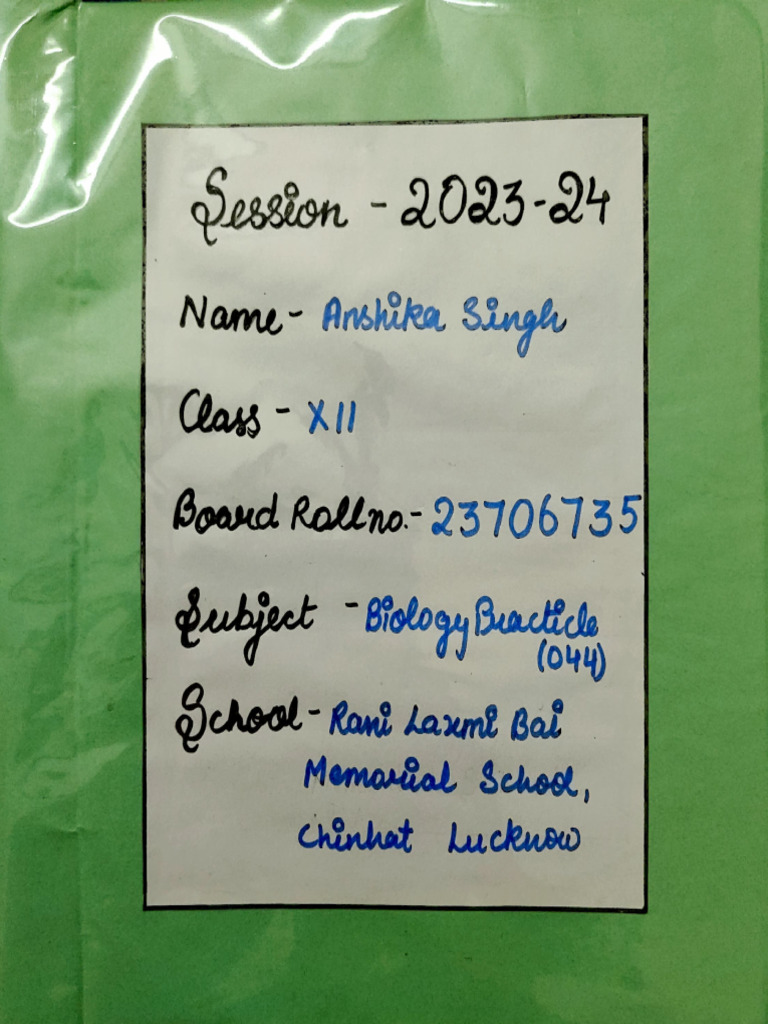 Session - 2023-24
Name - Anshika Singh
Class - XII
Board Roll no. - 23706735
Subject - Biology Practicle
(044)
School - Rani Laxmi Bai
Memorial School,
Chinhat Lucknow